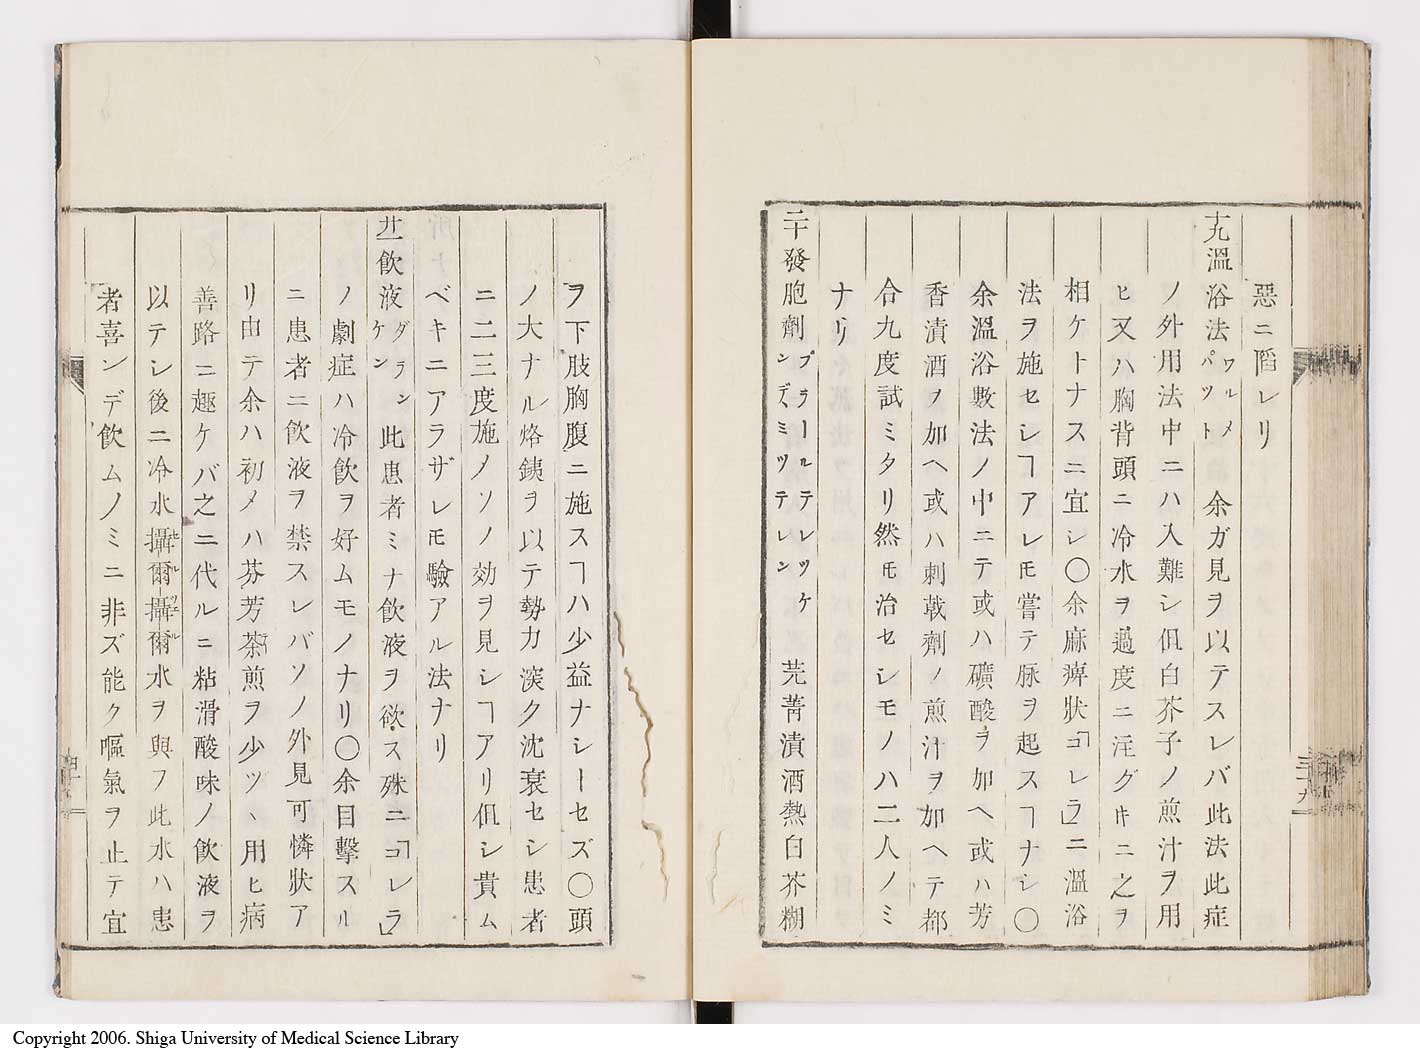 惡ニ陷レリ
十九溫浴法 ワルメパット 余ガ見ヲ以テスレバ此法此症
ノ外用法中ニハ入難シ但白芥子ノ煎汁ヲ用
ヒ又ハ胸背頭ニ冷水ヲ過度ニ注グキニ之ヲ
相ケトナスニ宜シ〇余麻痺狀「コレラ」ニ溫浴
法ヲ施セシヿアレ𪜈嘗テ脉ヲ起スヿナシ〇
余溫浴數法ノ中ニテ或ハ礦酸ヲ加ヘ或ハ芳
香漬酒ヲ加ヘ或ハ刺戟劑ノ煎汁ヲ加ヘテ都
合九度試ミタリ然𪜈治セシモノハ二人ノミ
ナリ
二十發胞劑 ブラールテレッケンデミッテレン 芫菁漬酒熱白芥糊
ヲ下肢胸腹ニ施スヿハ少益ナシーセズ〇頭
ノ大ナル烙銕ヲ以テ勢力漠ク沈衰セシ患者
ニ二三度施ノソノ効ヲ見シヿアリ但シ貴ム
ベキニアラザレ𪜈驗アル法ナリ
廿一飮液 ダランケン 此患者ミナ飮液ヲ欲ス殊ニ「コレラ」
ノ劇症ハ冷飮ヲ好ムモノナリ〇余目擊スル
ニ患者ニ飮液ヲ禁スレバソノ外見可憐狀ア
リ由テ余ハ初メハ芬芳茶煎ヲ少ツヽ用ヒ病
善路ニ趣ケバ之ニ代ルニ粘滑酸味ノ飮液ヲ
以テシ後ニ冷水攝爾攝爾水ヲ與フ此水ハ患
者喜ンデ飮ムノミニ非ズ能ク嘔氣ヲ止テ宜
三十九
四十
Copyright 2006. Shiga University of Medical Science Library